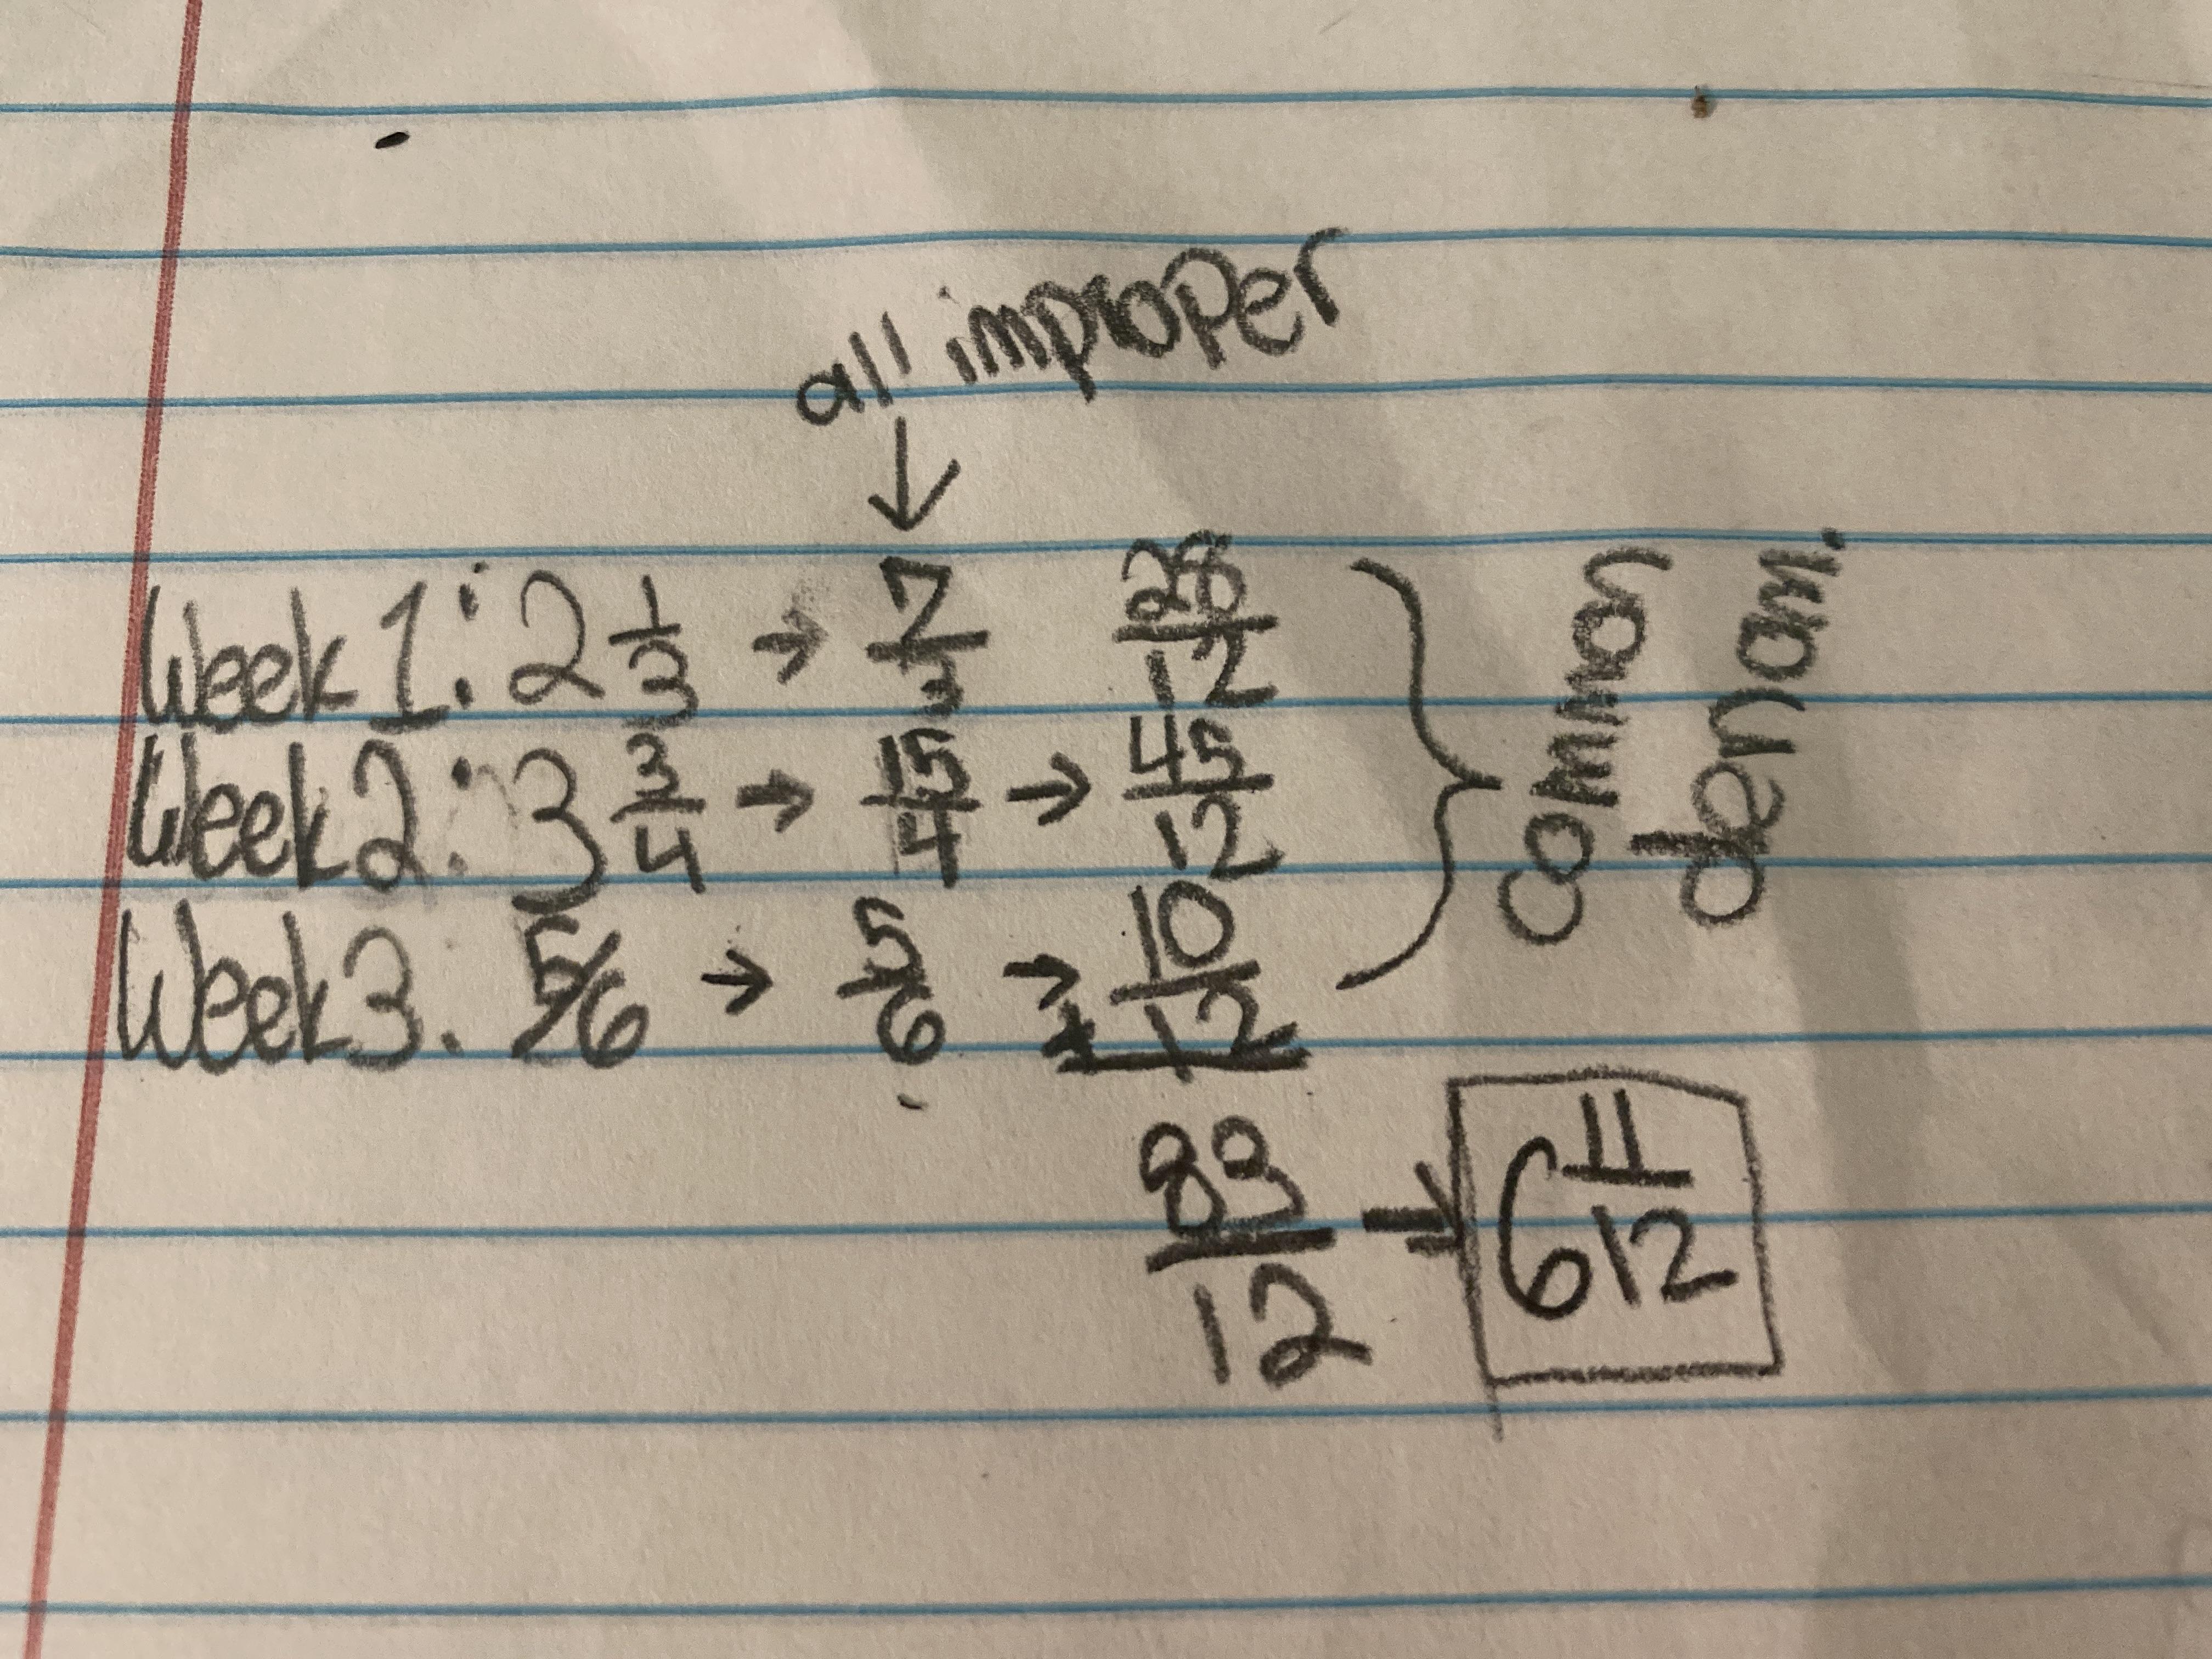 all improper
↓
Week 1: 2 1/3 → 7/3 28/12
Week 2: 3 3/4 → 15/4 → 45/12
Week 3. 5/6 → 5/6 → + 10/12
common
denom.
83/12 → 6 11/12